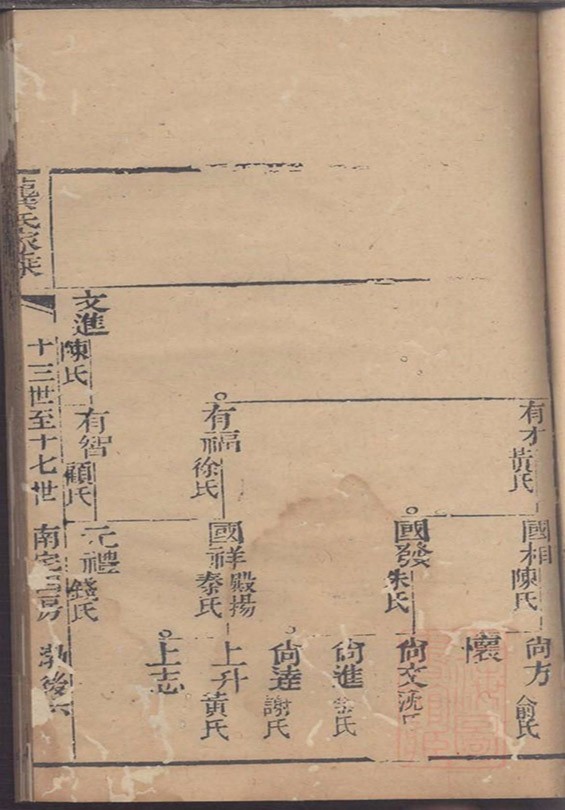 有才 黄氏
國相 陳氏
尚方 俞氏
懷
國發 朱氏
尚文 沈氏
尚進 金氏
尚達 謝氏
有福 徐氏
國祥 殿揚 秦氏
上升 黃氏
上志
文進 陳氏
有智 顧氏
元禮 錢氏
龔氏家族
十三世至十七世 南宅 房 後六